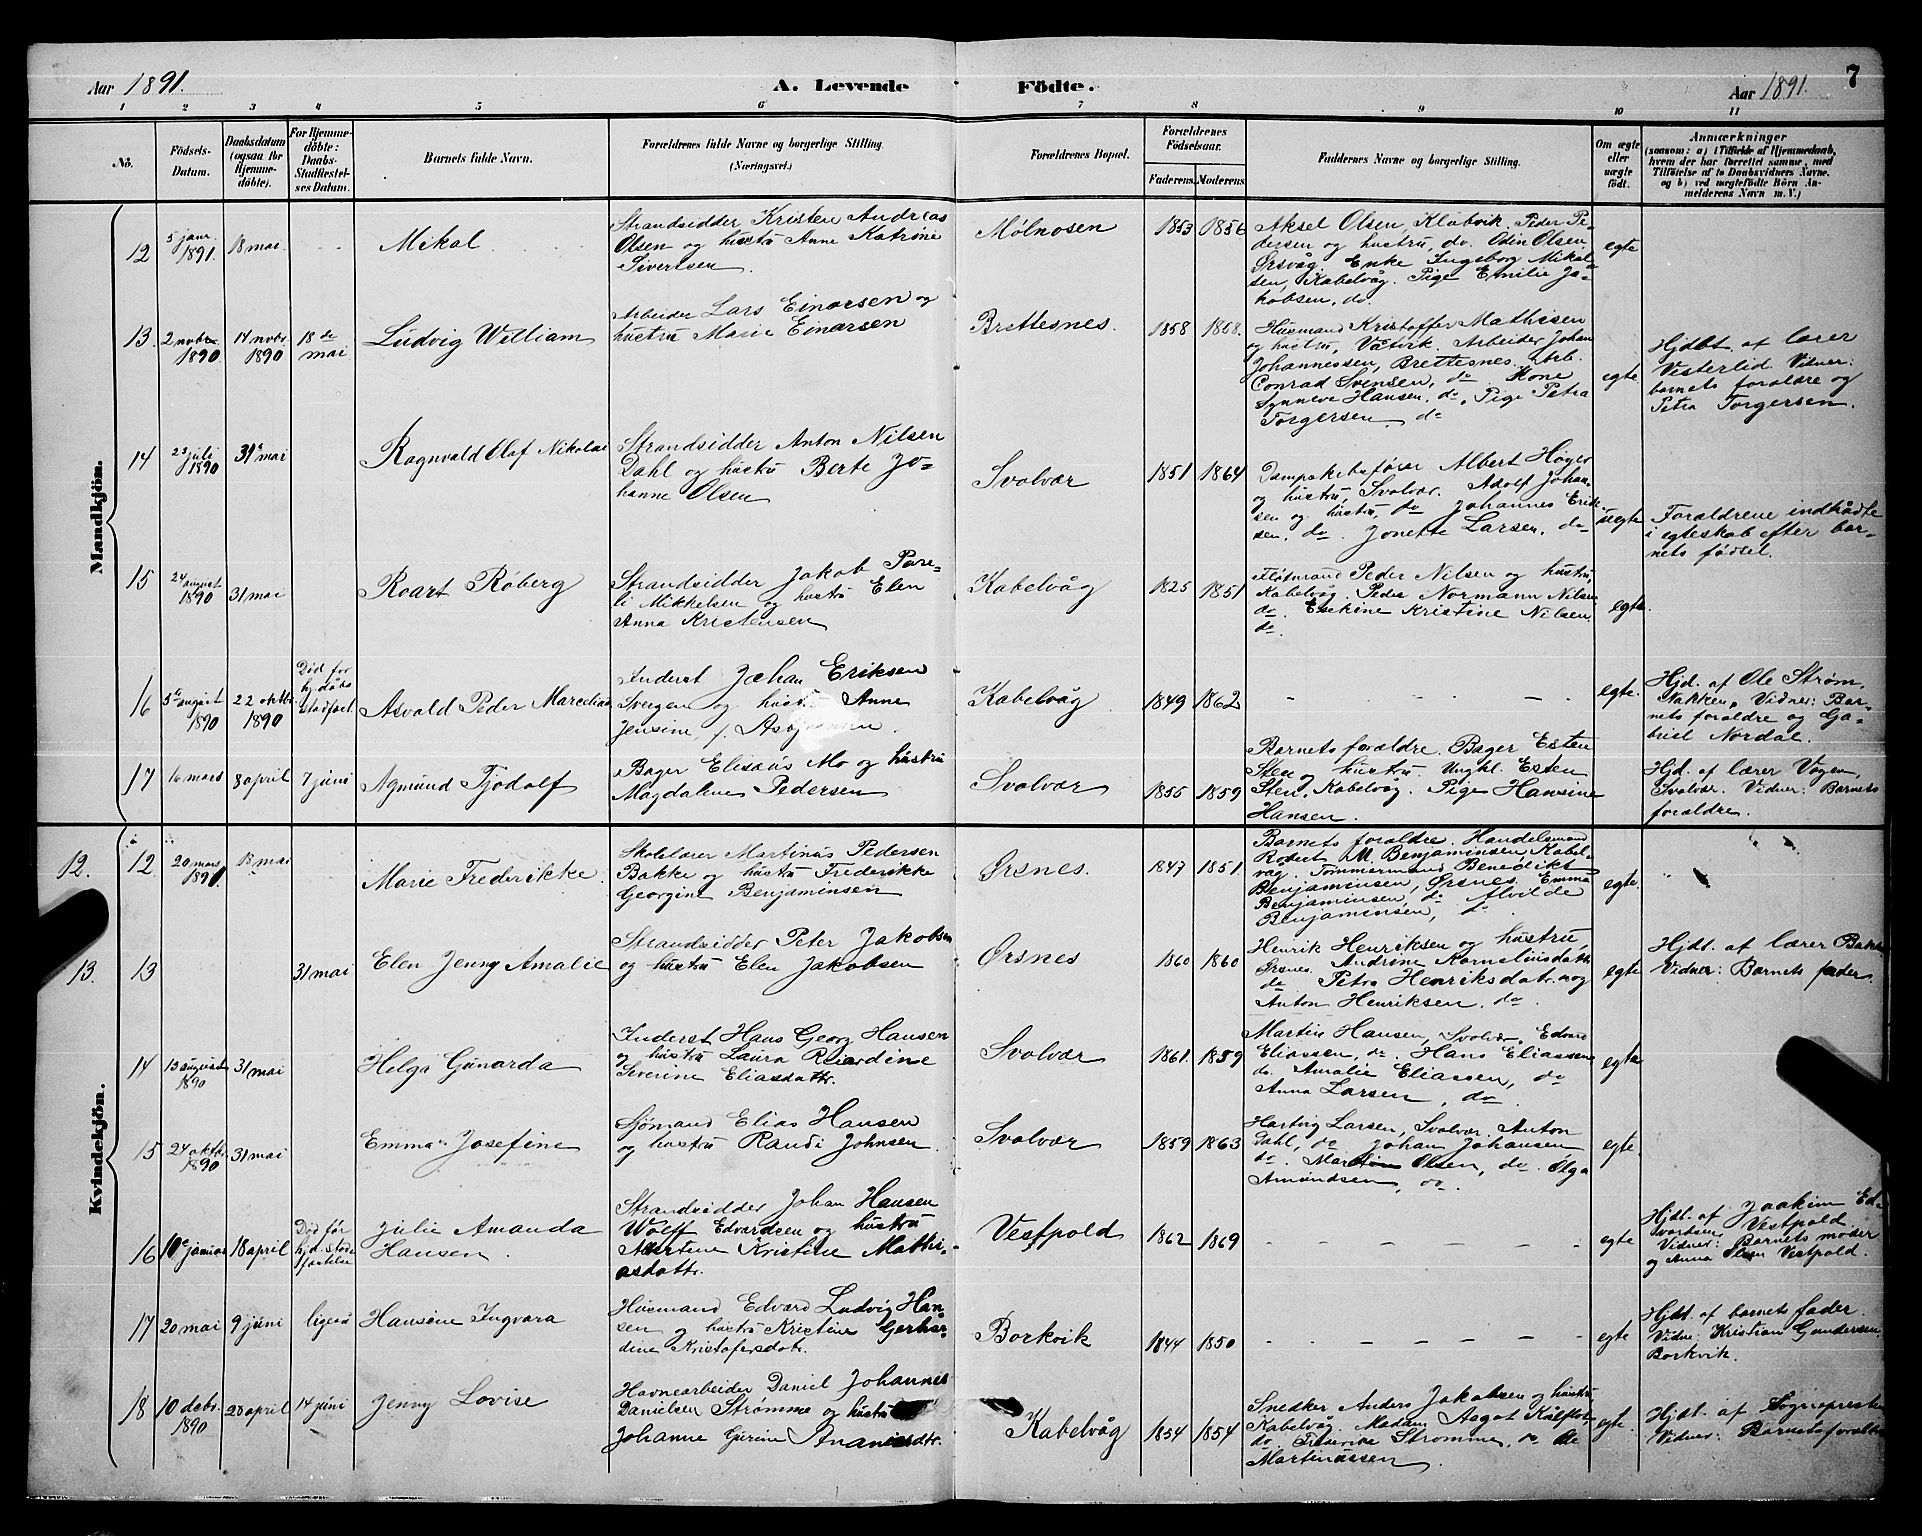 Aar 1891.
A. Levende
Födte.
7
Aar 1891.
1 2 3 4 5 6 7 8 9 10 11
No.
Födsels-
Datum.
Daabsdatum
(ogsaa for
Hjemme-
döbte).
For Hjemme-
döbte:
Daabs-
Stadfæstel-
ses Datum.
Barnets fulde Navn.
Forældrenes fulde Navne og borgerlige Stilling.
(Næringsvei.)
Forældrenes Bopæl.
Forældrenes
Födselsaar.
Faderens. Moderens.
Faddernes Navne og borgerlige Stilling.
Om ægte
eller
uægte
födt.
Anmærkninger
(saasom: a) i Tilfælde af Hjemmedaab,
hvem der har forrettet samme, med
Tilföielse af to Daabsvidners Navne,
og b) ved uægtefödte Börn An-
melderens Navn m. V.)
Mandkjön.
12
5 janr
1891.
18 mai
Mikal
Strandsidder Kristen Andreas
Olsen og hustru Anne Katrine
Sivertsen
Mølnosen
1853 1856
Aksel Olsen, Kløbvik. Peder Pe-
dersen og hustru, do. Odin Olsen,
Ørsvåg. Enke Ingeborg Mikal-
sen, Kabelvåg. Pige Emilie Ja-
kobsen, do.
egte
13.
2 novbr
1890.
14 novbr.
1890
18de
mai
Ludvig William
Arbeider Lars Einarsen og
hustru Marie Einarsen
Brettesnes.
1858 1858.
Husmand Kristoffer Mathisen
og hustru, Votvik. Arbeider Johan
Johannessen, Brettesnes. Arb.
Conrad Svensen, do Kone
Synneve Hansen, do. Pige Petra
Torgersen, do
egte
Hjdbt. af lærer
Vesterlid. Vidner:
barnets forældre og
Petra Torgersen.
14
23 juli
1890
31 mai
Ragnvald Olaf Nikolai
Strandsidder Anton Nilsen
Dahl og hustru Berte Jo-
hanne Olsen
Svolvær
1851 1864
Dampskibsfører Albert Høyer
og hustru, Svolvær. Adolf Johan-
sen og hustru, do Johannes Erik-
sen, do. Jonette Larsen, do
uegte
Forældrene indtrådte
i egteskab efter bar-
nets fødsel.
15
24 august
1890
31 mai
Roart Røberg
Strandsidder Jakob Pare-
li Mikkelsen og hustru Elen
Anna Kristensen
Kabelvåg
1825 1851
Fløtmand Peder Nilsen og hustru,
Kabelvåg. Peder Normann Nilsen
do. Erekine Kristine Nilsen
do.
egte.
16
5te august
1890
22 oktbr.
1890
Død før
hj.dåbs
stadfæst.
Asvald Peder Marcelius
Inderst Johan Eriksen
Svergen og hustru Anne
Jensine, f. Asbjørnsen.
Kabelvåg
1849 1862
egte.
Hjd. af Ole Strøm,
Nakken, Vidner: Bar-
nets forældre og Ga-
briel Nordal.
17
16 mars
8 april
7 juni
Agmund Tjodolf
Bager Elisæus Mo og hustru
Magdalene Pedersen
Svolvær
1855 1859
Barnets forældre. Bager Esten
Sten og hustru. Ungkl. Esten
Sten, Kabelvåg. Pige Hansine
Hansen.
Hjd. af lærer Vågen,
Svolvær. Vidner: Barnets
forældre.
Kvindekjön.
12. 12
20 mars
1891.
18 mai
Marie Frederikke.
Skolelærer Martinus Pedersen
Bakke og hustru Frederikke
Georgine Benjaminsen
Ørsnes.
1847 1851.
Barnets forældre. Handelsmand
Robert M. Benjaminsen, Kabel-
våg. Tømmermand Benedikt
Benjaminsen, Ørsnes. Emma
Benjaminsen, do Alvilde
Benjaminsen, do.
egte.
13. 13
31 mai
Elen Jenny Amalie
Strandsidder Peter Jakobsen
og hustru Elen Jakobsen
Ørsnes
1860 1860
Henrik Henriksen og hustru,
Ørsnes. Andrine Korneliusdatr,
do Petra Henriksdatr. og
Anton Henriksen, do.
egte
Hjdt. af lærer Bakke
Vidner: Barnets fader.
14
13 august
1890
31 mai
Helga Gunarda
Inderst Hans Georg Hansen
og hustru Laura Rikardine
Severine Eliasdattr.
Svolvær
1861. 1859
Martin Hansen, Svolvær. Edvard
Eliassen, do. Hans Eliassen
do. Amalie Eliassen, do
Anna Larsen, do.
egte.
15
24 oktbr.
1890
31 mai
Emma Josefine
Sømand Elias Hansen
og hustru Randi Johnsen.
Svolvær
1859 1863
Hartvig Larsen, Svolvær. Anton
Dahl, do Johan Johansen
do. Martine Olsen, do. Olga
Amundsen, do.
egte
16
10 januar
18 april
Død før
hjd. stad-
fæstelse
Julie Amanda
Hansen.
Strandsidder Johan Hansen
Wolff Edvardsen og hustru
Martene Kristine Mathi-
asdattr.
Vestpold
1862 1869
egte
Hjdt. af Joakim Ed-
vardsen, Vestpold
Vidner: Barnets moder
og Anna Olsen Vestpold.
17
20 mai
9 juni
ligeså
Hansine Ingvara
Husmand Edvard Ludvig Han-
sen og hustru Kristine Gerhar-
dine Kristofersdatr.
Borkvik
1844 1850
egte
Hjdt. af barnets fader.
Vidner: Kristian Gundersen,
Borkvik.
18
10 debr.
1890
20 april
14 juni
Jenny Lovise
Havnearbeider Daniel Johannes
Danielsen Strømme og hustru
Johanne Gurine Ananiasdtr.
Kabelvåg
1854 1854
Snedker Anders Jakobsen og hustru
Kabelvåg. Madam Aagot Kålflot,
do. Frederike Strømme, do Ole
Martinussen
egte
Hjdt. af Sognepresten
Vidner: Barnets forældre